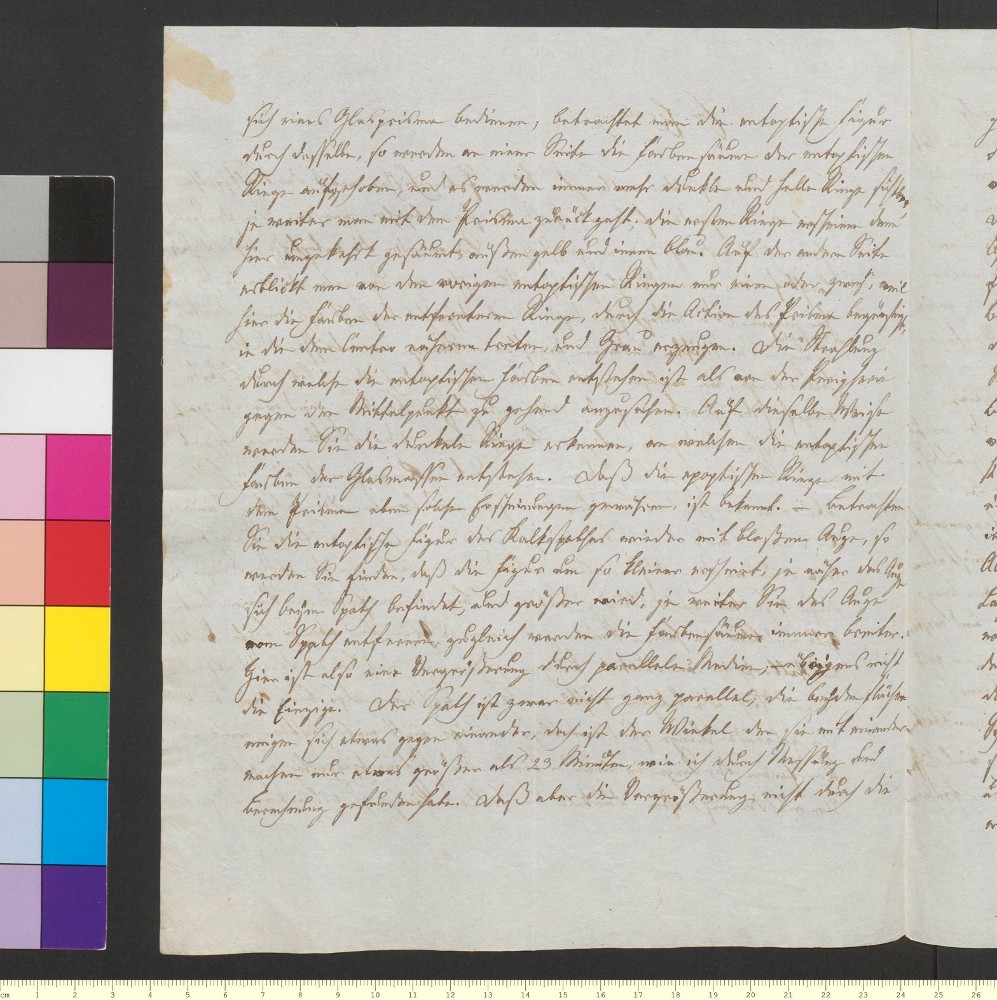 sich eines Glasprisma bedienen; betrachtet man die entoptische Figur
durch dasselbe, so werden an einer Seite die Farbensäume der entoptischen
Ringe aufgehoben, und es werden immer mehr dunkle und helle Ringe sichtbar,
je weiter man mit dem Prisma zurückgeht; die ersten Ringe erscheinen dann
hier umgekehrt gesäumt, außen gelb und innen blau. Auf der andern Seite
erblickt man von den vorigen entoptischen Ringen nur einen oder zwei, weil
hier die Farben der entfernteren Ringe, durch die Action des Prisma
in die dem Center näheren treten, und Grau erzeugen. Die Strahlung
durch welche die entoptischen Farben entstehen ist als von der Peripherie
gegen den Mittelpunkt zu gehend anzusehen. Auf dieselbe Weise
werden Sie die dunkeln Ringe erkennen, an welchen die entoptischen
Farben der Glasmassen entstehen. Daß die epoptischen Ringe mit
dem Prisma eben solche Erscheinungen gewähren, ist bekannt. – Betrachten
Sie die entoptische Figur des Kalkspathes wieder mit bloßem Auge, so
werden Sie finden, daß die Figur um so kleiner erscheint, je näher das Auge
sich beym Spath befindet, und größer wird, je weiter Sie das Auge
vom Spath entfernen, zugleich werden die Farbensäume immer breiter.
Hier ist also eine Vergrößerung durch parallele Medien, – übrigens nicht
die Einzige. Der Spath ist zwar nicht ganz parallel, die beyden Flächen
neigen sich etwas gegen einander, doch ist der Winkel den sie mit einander
machen nur etwas größer als 23 Minuten, wie ich durch Messung und
Berechnung gefunden habe. Daß aber die Vergrößerung nicht durch die